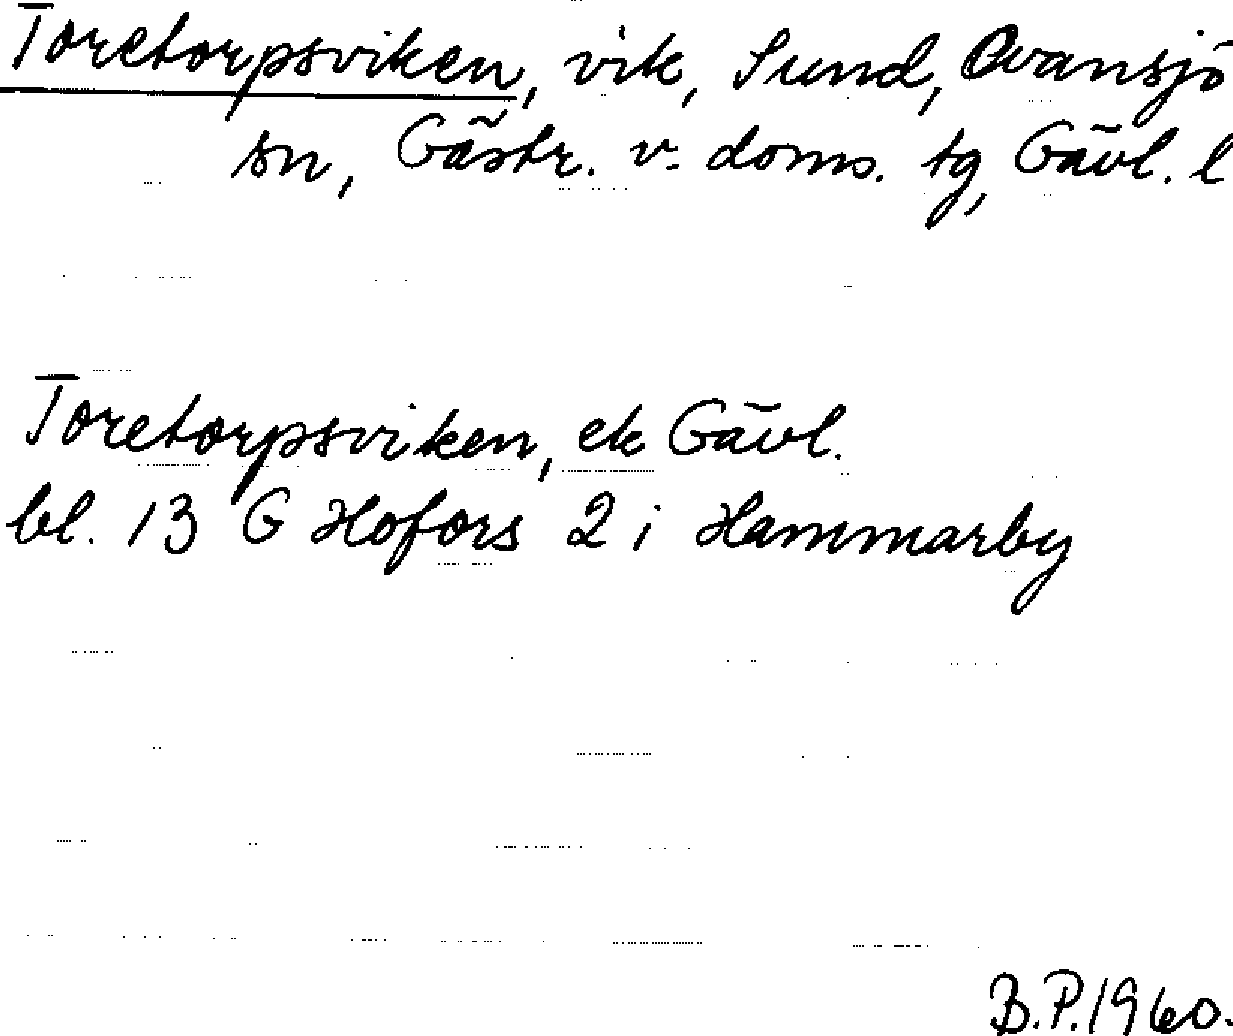 Toretorpsviken, vik, Sund, Ovansjö
sn, Gästr. v. doms. tg, Gävl. l
Toretorpsviken, ek Gävl.
bl. 13 G Hofors 2 i Hammarby
B.P. 1960.